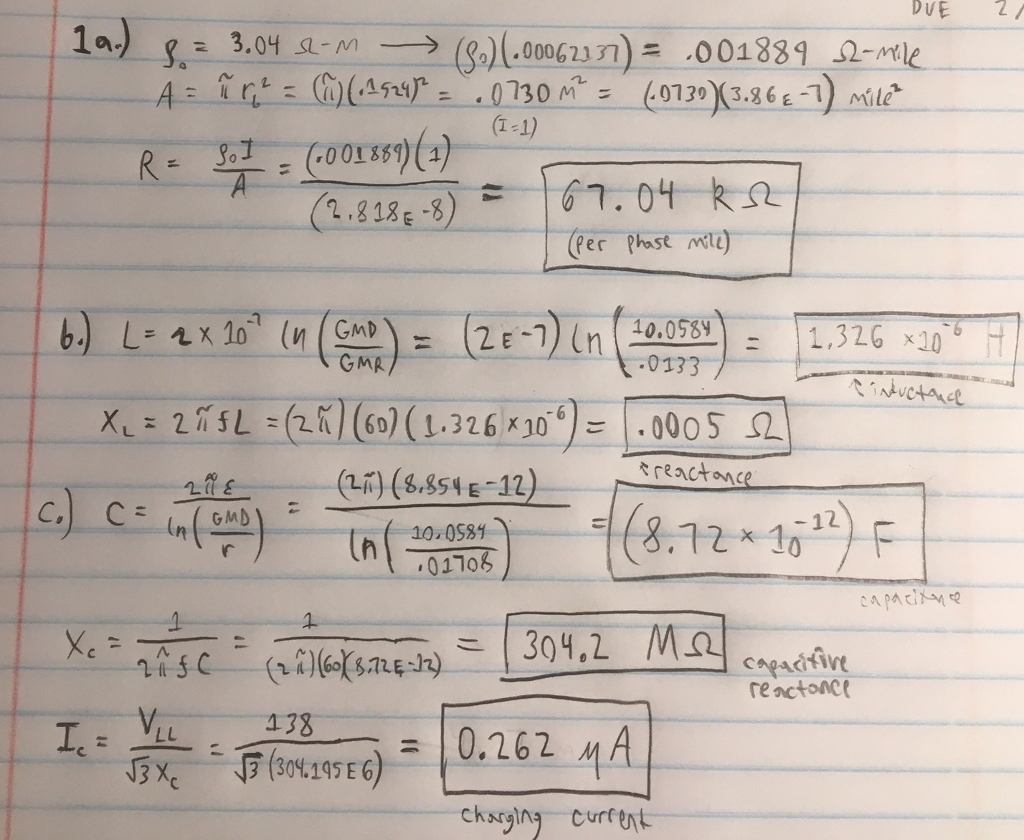 DUE 2/
1a.) ρ₀ = 3.04 Ω-m → (ρ₀)(.00062137) = .001889 Ω-mile
A = π r₀² = (π)(.1524)² = .0730 m² = (.0730)(3.86E-7) mile²
(I=1)
R = ρ₀I/A = (.001889)(1)/(2.818E-8) = 67.04 kΩ
(per phase mile)
b.) L = 2 × 10⁻⁷ ln(GMD/GMR) = (2E-7) ln(10.0584/.0133) = 1.326 ×10⁻⁶ H
↑ inductance
X_L = 2πfL = (2π)(60)(1.326×10⁻⁶) = .0005 Ω
↑ reactance
c.) C = 2πε/ln(GMD/r) = (2π)(8.854E-12)/ln(10.0584/.01708) = (8.72 × 10⁻¹²) F
capacitance
X_c = 1/2πfC = 1/(2π)(60)(8.72E-12) = 304.2 MΩ capacitive
reactance
I_c = V_LL/√3 X_c = 138/√3 (304.195E6) = 0.262 μA
charging current